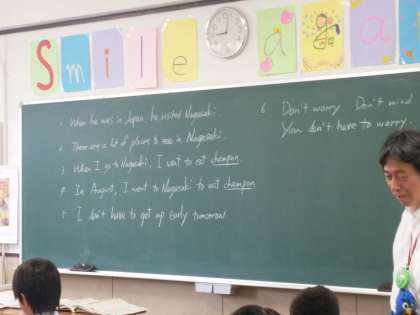 Smile
a
1. When he was in Japan, he visited Nagasaki.
2. There are a lot of places to see in Nagasaki.
3. When I go to Nagasaki, I want to eat champon.
4. In August, I went to Nagasaki to eat champon.
5. I don't have to get up early tomorrow
6. Don't worry. Don't mind
You don't have to worry.